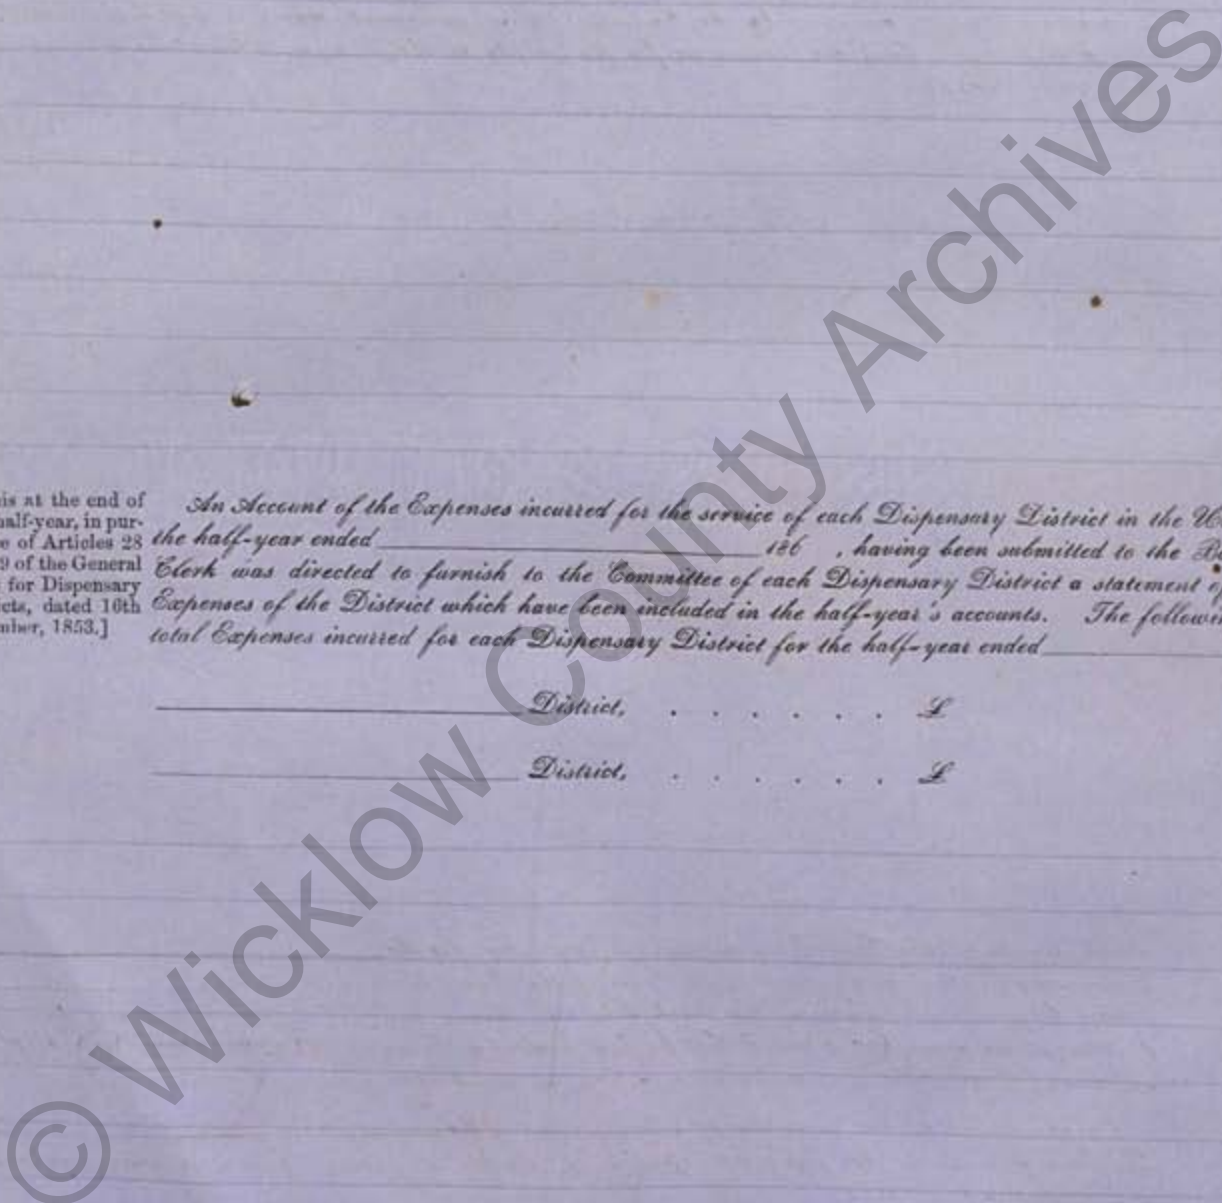 is at the end of
half-year, in pur-
e of Articles 28
9 of the General
for Dispensary
cts, dated 16th
mber, 1853.]
An Account of the Expenses incurred for the service of each Dispensary District in the U
the half-year ended 186 , having been submitted to the B
Clerk was directed to furnish to the Committee of each Dispensary District a statement of
Expenses of the District which have been included in the half-year's accounts. The followin
total Expenses incurred for each Dispensary District for the half-year ended
District, . . . . . . £
District, . . . . . . £
© Wicklow County Archives